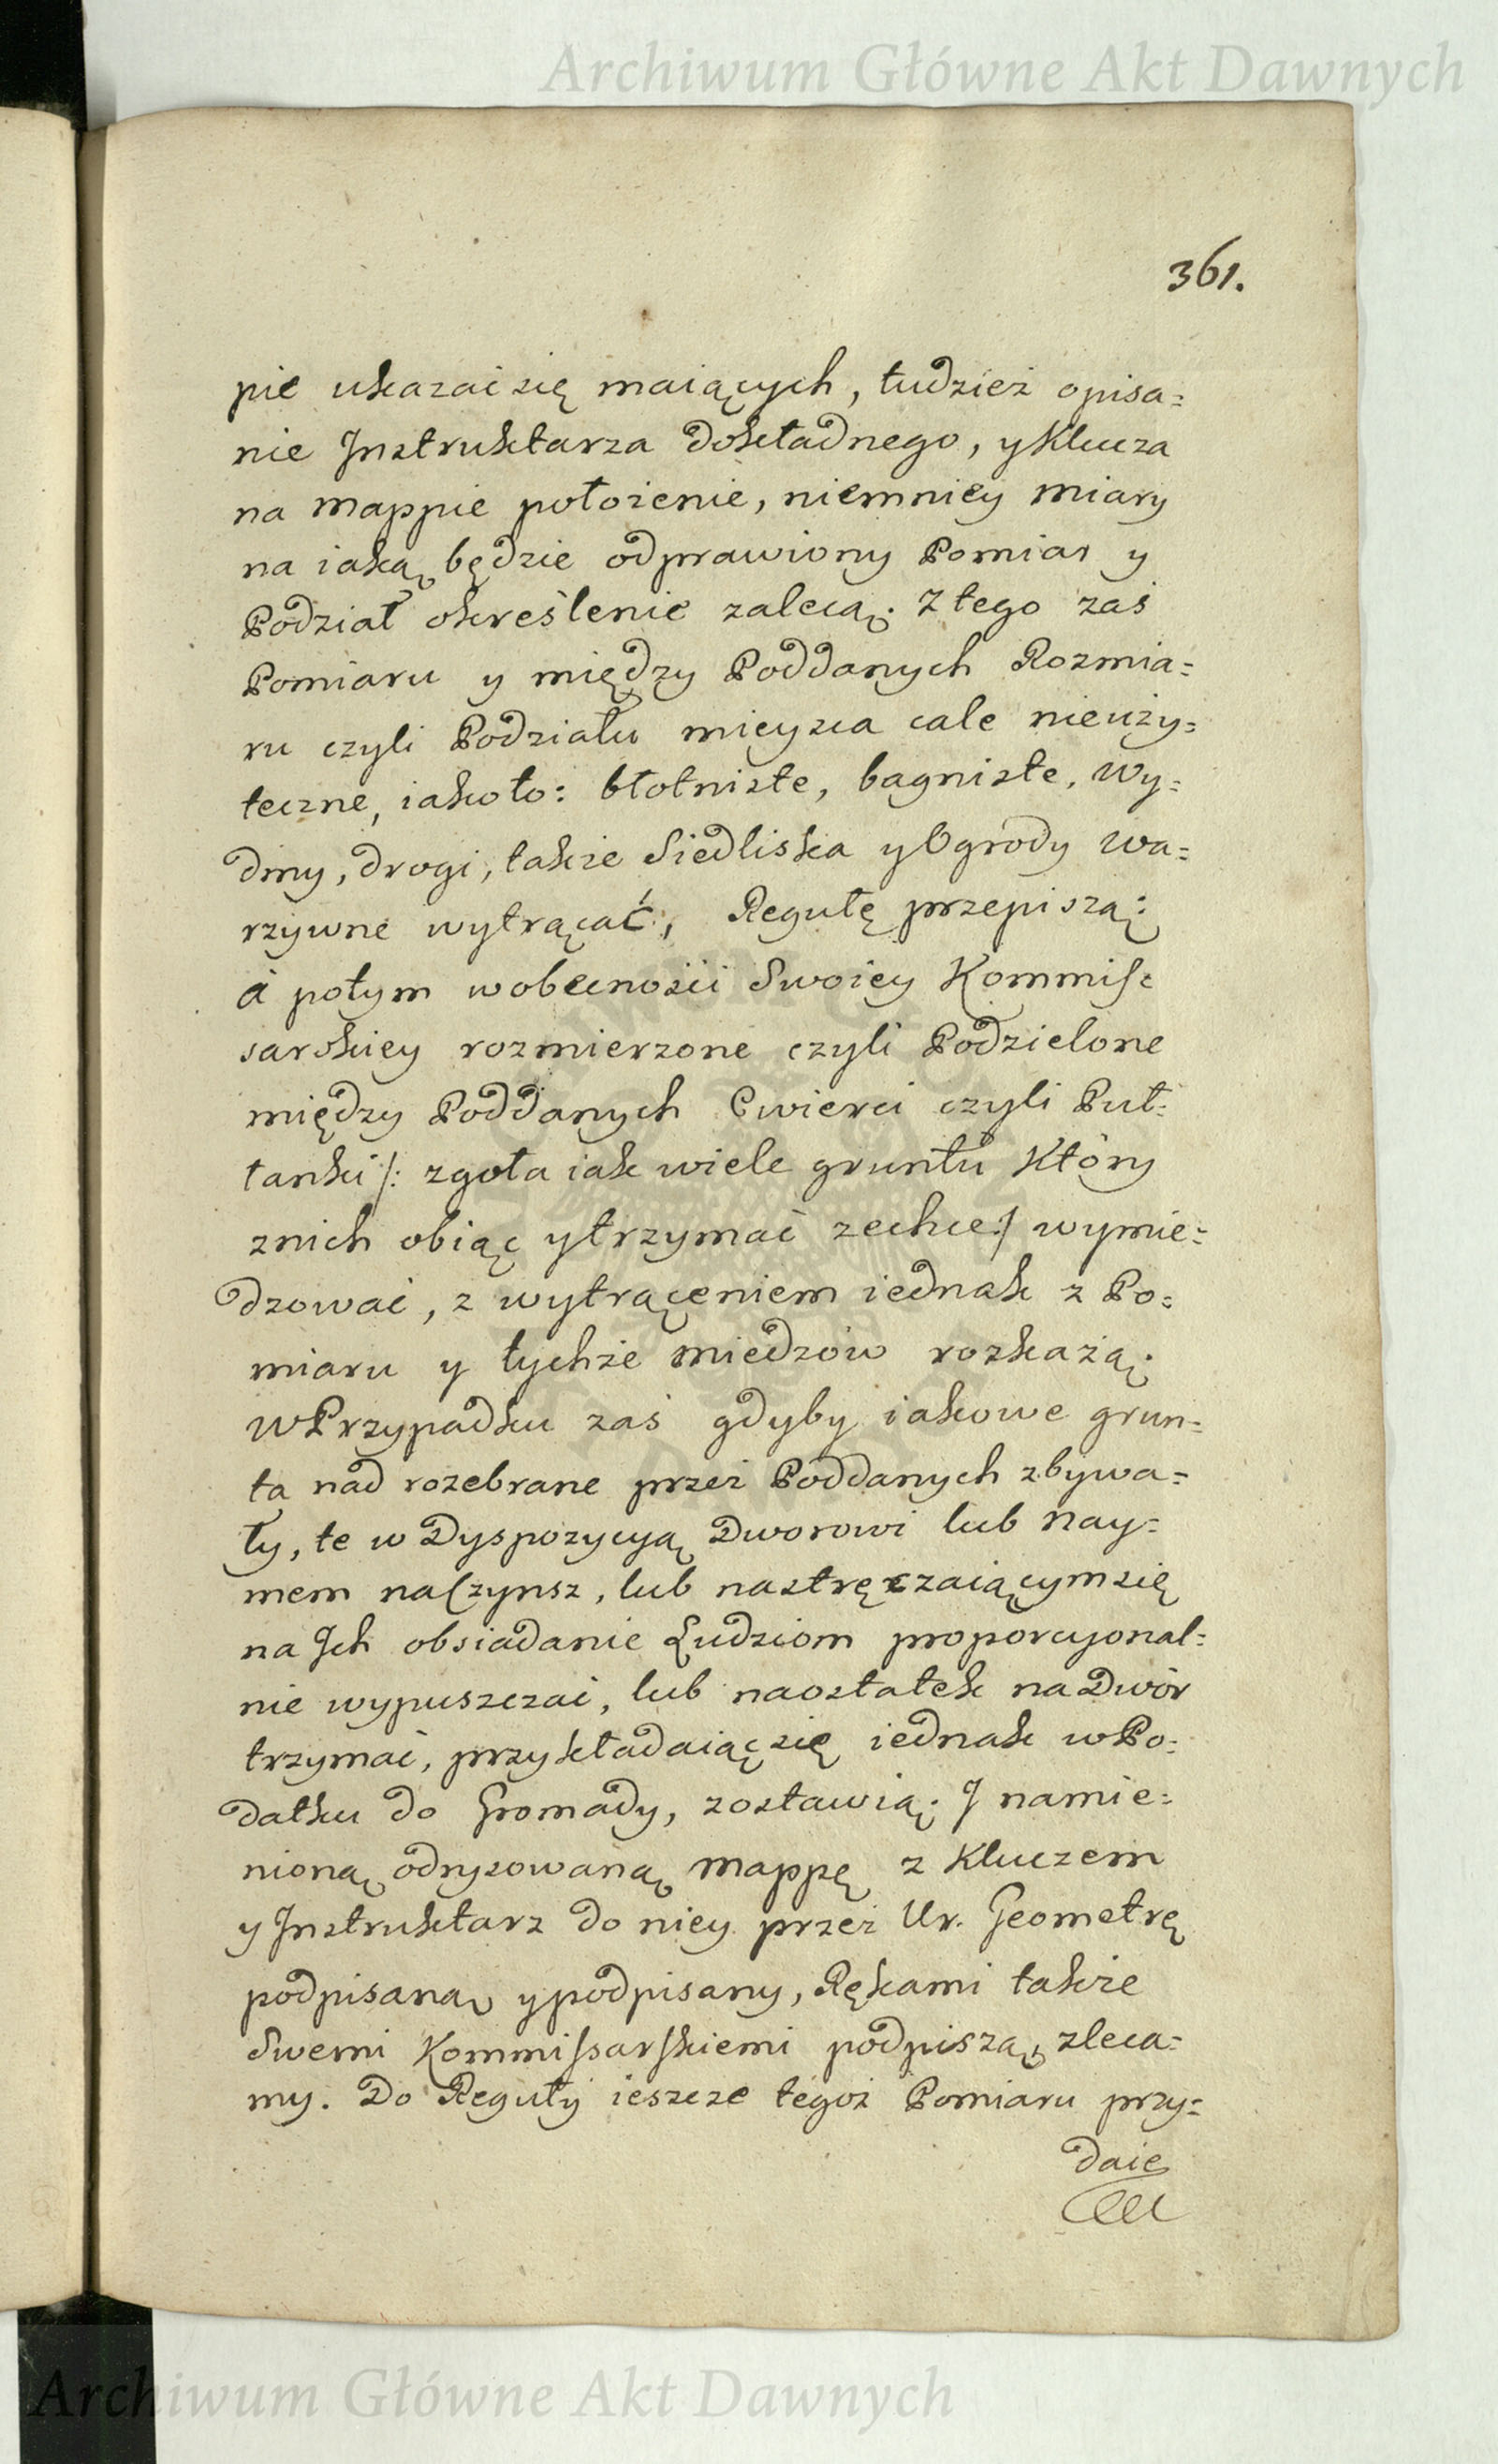 Archiwum Główne Akt Dawnych
361.
pie ukazać się maiących, tudzież opisa=
nie Jnstruktarza dokładnego, y Klucza
na mappie położenie, niemniey miary
na iaką będzie odprawiony Pomiar y
Podział okreslenie zalecą. Z tego zaś
Pomiaru y między Poddanych Rozmia=
ru czyli Podziału mieysca cale nieuży=
teczne, iakoto: błotniste, bagniste, Wy=
dmy, drogi, także Siedliska y Ogrody wa=
rzywne wytrącać, Regułę przepiszą:
á potym w obecności Swoiey Kommis=
sarskiey rozmierzone czyli Podzielone
między Poddanych Cwierci czyli Puł=
łanki /: zgoła iak wiele gruntu Który
z nich obiąć y trzymać zechce :/ wymie=
dzować, z wytrąceniem iednak z Po=
miaru y tychże miedzów rozkażą.
W Przypadku zaś gdyby iakowe grun=
ta nad rozebrane przez Poddanych zbywa=
ły, te w Dyspozycyą Dworowi lub nay=
mem na Czynsz, lub nastręczaiącym się
na Jch obsiadanie Ludziom proporcyonal=
nie wypuszczać, lub naostatek na Dwór
trzymać, przykładaiąc się iednak w Po=
datku do Gromady, zostawią. J namie=
nioną odrysowaną mappę z Kluczem
y Jnstruktarz do niey przez Ur. Geometrę
podpisaną y podpisany, Rękami także
Swemi Kommissarskiemi podpiszą, zleca=
my. Do Reguły ieszcze tegoż Pomiaru przy=
daie
Archiwum Główne Akt Dawnych